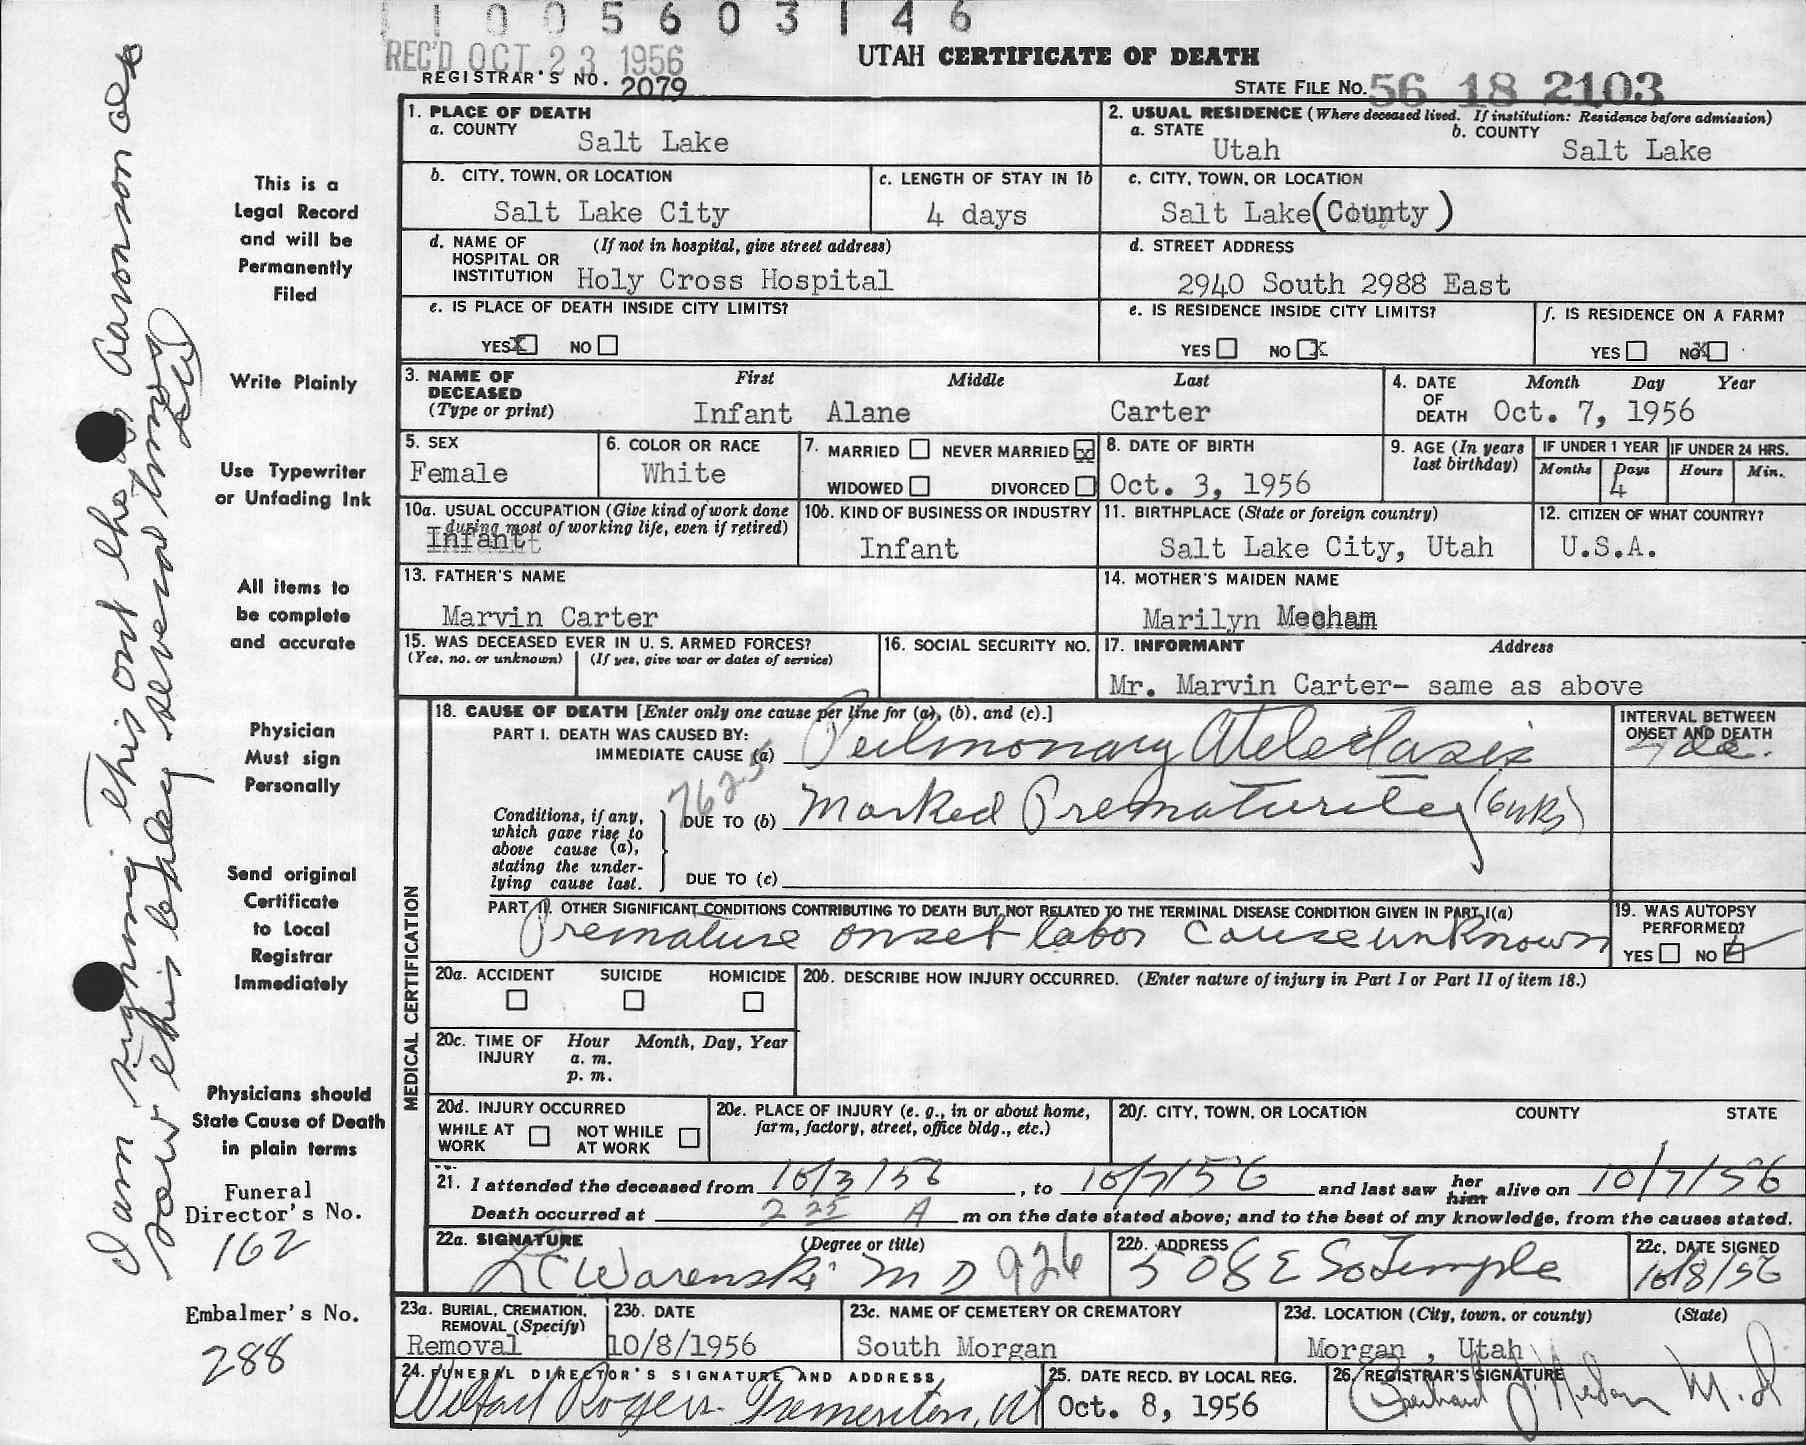 1 1 0 0 5 6 0 3 1 4 6
REC'D OCT 23 1956
UTAH CERTIFICATE OF DEATH
REGISTRAR'S NO. 2079
STATE FILE NO. 56 18 2103
This is a
Legal Record
and will be
Permanently
Filed
Write Plainly
Use Typewriter
or Unfading Ink
All items to
be complete
and accurate
Physician
Must sign
Personally
Send original
Certificate
to Local
Registrar
Immediately
Physicians should
State Cause of Death
in plain terms
Funeral
Director's No.
162
Embalmer's No.
288
I am signing this out the Aaronson
saw this baby several times
1. PLACE OF DEATH
a. COUNTY
Salt Lake
2. USUAL RESIDENCE (Where deceased lived. If institution: Residence before admission)
a. STATE
Utah
b. COUNTY
Salt Lake
b. CITY, TOWN, OR LOCATION
Salt Lake City
c. LENGTH OF STAY IN 1b
4 days
c. CITY, TOWN, OR LOCATION
Salt Lake (County)
d. NAME OF (If not in hospital, give street address)
HOSPITAL OR
INSTITUTION Holy Cross Hospital
d. STREET ADDRESS
2940 South 2988 East
e. IS PLACE OF DEATH INSIDE CITY LIMITS?
YES X NO
e. IS RESIDENCE INSIDE CITY LIMITS?
YES NO X
f. IS RESIDENCE ON A FARM?
YES NO X
3. NAME OF
DECEASED
(Type or print)
First Middle Last
Infant Alane Carter
4. DATE
OF
DEATH
Month Day Year
Oct. 7, 1956
5. SEX
Female
6. COLOR OR RACE
White
7. MARRIED NEVER MARRIED X
WIDOWED DIVORCED
8. DATE OF BIRTH
Oct. 3, 1956
9. AGE (In years
last birthday)
IF UNDER 1 YEAR
Months Days
4
IF UNDER 24 HRS.
Hours Min.
10a. USUAL OCCUPATION (Give kind of work done
during most of working life, even if retired)
Infant
10b. KIND OF BUSINESS OR INDUSTRY
Infant
11. BIRTHPLACE (State or foreign country)
Salt Lake City, Utah
12. CITIZEN OF WHAT COUNTRY?
U.S.A.
13. FATHER'S NAME
Marvin Carter
14. MOTHER'S MAIDEN NAME
Marilyn Mecham
15. WAS DECEASED EVER IN U. S. ARMED FORCES?
(Yes, no, or unknown) (If yes, give war or dates of service)
16. SOCIAL SECURITY NO.
17. INFORMANT Address
Mr. Marvin Carter- same as above
MEDICAL CERTIFICATION
18. CAUSE OF DEATH [Enter only one cause per line for (a), (b), and (c).]
PART I. DEATH WAS CAUSED BY:
IMMEDIATE CAUSE (a) Pulmonary Atelectasis
INTERVAL BETWEEN
ONSET AND DEATH
762.5
Conditions, if any,
which gave rise to
above cause (a),
stating the under-
lying cause last.
DUE TO (b) Marked Prematurity (6 wks)
DUE TO (c)
PART II. OTHER SIGNIFICANT CONDITIONS CONTRIBUTING TO DEATH BUT NOT RELATED TO THE TERMINAL DISEASE CONDITION GIVEN IN PART I(a)
Premature onset labor cause unknown
19. WAS AUTOPSY
PERFORMED?
YES NO
20a. ACCIDENT SUICIDE HOMICIDE
20b. DESCRIBE HOW INJURY OCCURRED. (Enter nature of injury in Part I or Part II of item 18.)
20c. TIME OF Hour Month, Day, Year
INJURY a. m.
p. m.
20d. INJURY OCCURRED
WHILE AT NOT WHILE
WORK AT WORK
20e. PLACE OF INJURY (e. g., in or about home,
farm, factory, street, office bldg., etc.)
20f. CITY, TOWN, OR LOCATION COUNTY STATE
21. I attended the deceased from 10/3/56, to 10/7/56 and last saw her him alive on 10/7/56
Death occurred at 2 25 A m on the date stated above; and to the best of my knowledge, from the causes stated.
22a. SIGNATURE (Degree or title)
LC Warenski M D 926
22b. ADDRESS
508 E So Temple
22c. DATE SIGNED
10/8/56
23a. BURIAL, CREMATION,
REMOVAL (Specify)
Removal
23b. DATE
10/8/1956
23c. NAME OF CEMETERY OR CREMATORY
South Morgan
23d. LOCATION (City, town, or county) (State)
Morgan , Utah
24. FUNERAL DIRECTOR'S SIGNATURE AND ADDRESS
Rogers Tremonton, Ut
25. DATE RECD. BY LOCAL REG.
Oct. 8, 1956
26. REGISTRAR'S SIGNATURE
M.D